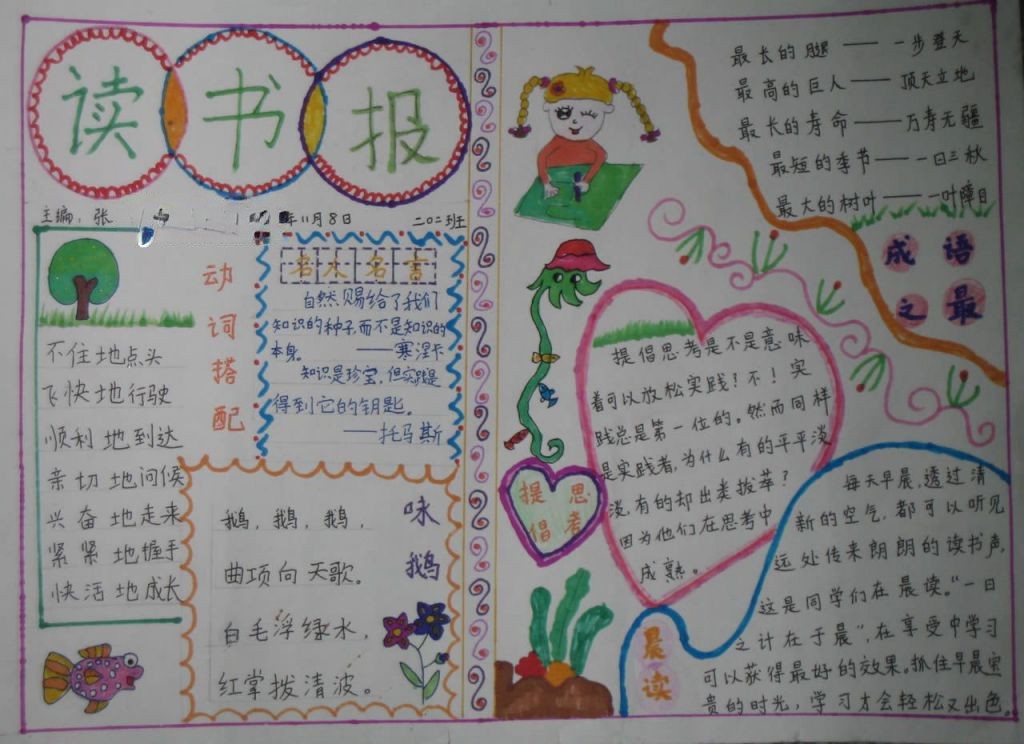 读书报
主编：张
年11月8日
二〇二班
动词搭配
不住地点头
飞快地行驶
顺利地到达
亲切地问候
兴奋地走来
紧紧地握手
快活地成长
名人名言
自然赐给了我们
知识的种子，而不是知识的
本身。——塞涅卡
知识是珍宝，但实践是
得到它的钥匙。
——托马斯
咏鹅
鹅，鹅，鹅，
曲项向天歌。
白毛浮绿水，
红掌拨清波。
最长的腿——一步登天
最高的巨人——顶天立地
最长的寿命——万寿无疆
最短的季节——一日三秋
最大的树叶——一叶障目
成语
之最
提倡思考
提倡思考是不是意味
着可以放松实践？不！实
践总是第一位的。然而同样
是实践者，为什么有的平平淡
淡，有的却出类拔萃？
因为他们在思考中
成熟。
晨读
每天早晨，透过清
新的空气，都可以听见
远处传来朗朗的读书声，
这是同学们在晨读。“一日
之计在于晨”，在享受中学习
可以获得最好的效果。抓住早晨宝
贵的时光，学习才会轻松又出色。